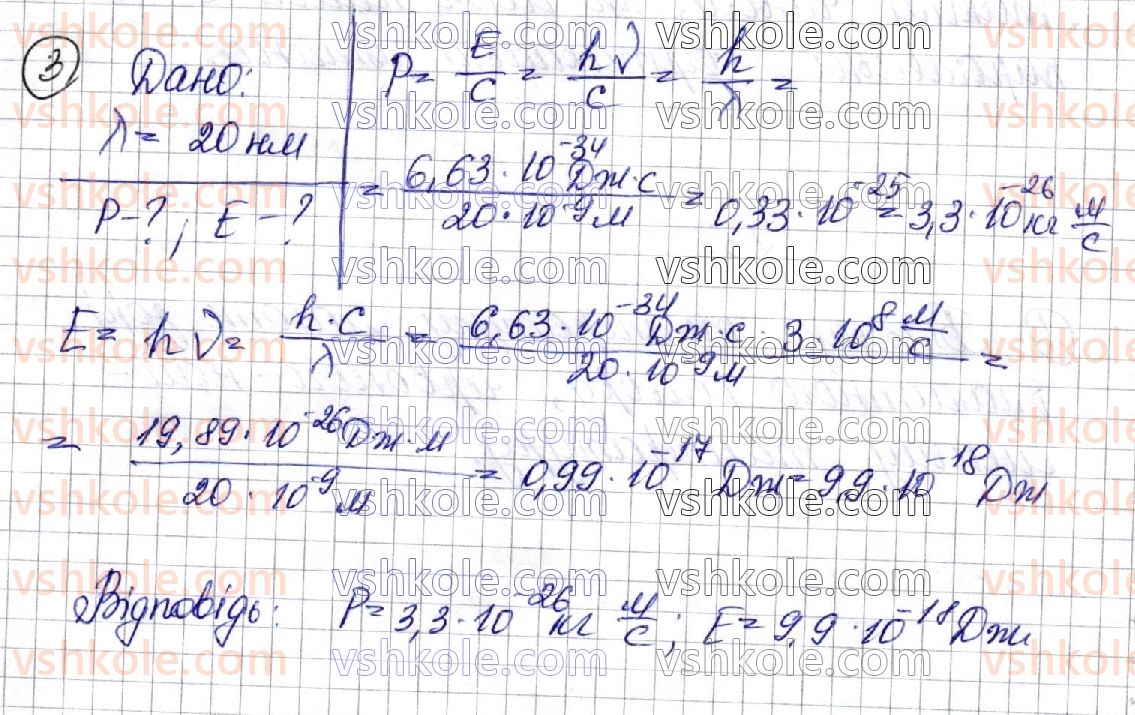 3 Дано:
λ = 20 нм
P - ?; E - ?
P = E/c = hν/c = h/λ =
= 6,63 · 10⁻³⁴ Дж·с / 20 · 10⁻⁹ м = 0,33 · 10⁻²⁵ = 3,3 · 10⁻²⁶ кг м/с
E = hν = h·c/λ = 6,63 · 10⁻³⁴ Дж·с · 3 · 10⁸ м/с / 20 · 10⁻⁹ м =
= 19,89 · 10⁻²⁶ Дж·м / 20 · 10⁻⁹ м = 0,99 · 10⁻¹⁷ Дж = 9,9 · 10⁻¹⁸ Дж
Відповідь: P = 3,3 · 10⁻²⁶ кг м/с; E = 9,9 · 10⁻¹⁸ Дж
vshkole.com